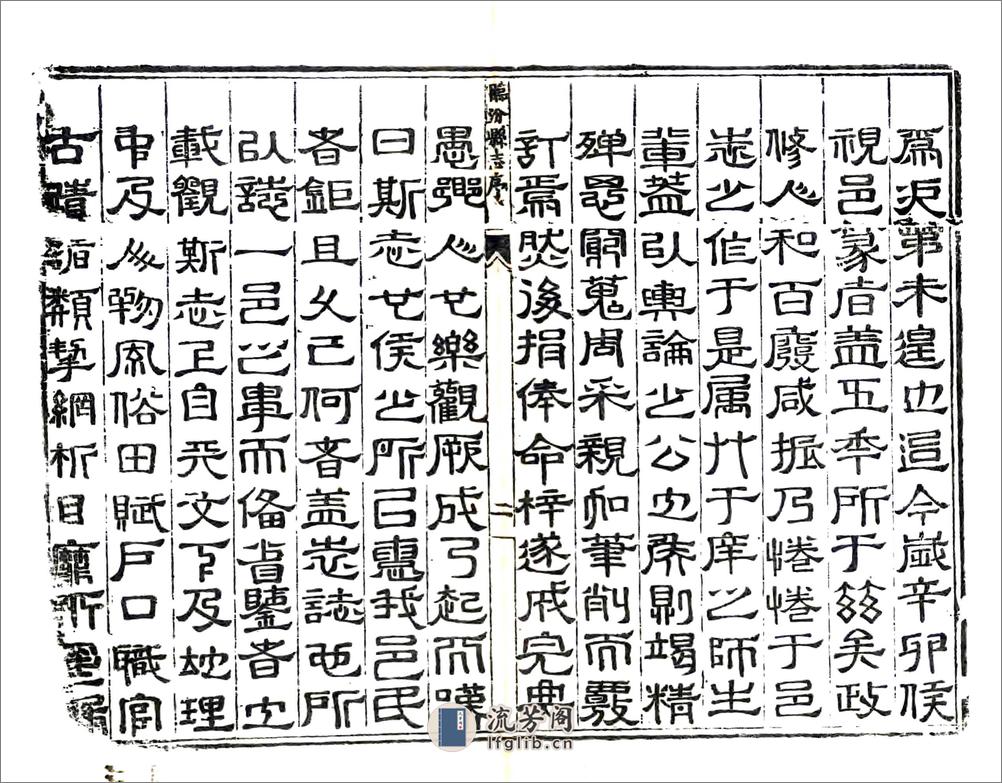 爲第未遑也迨今歲辛卯侯
視邑篆者蓋五年所于兹矣政
修人和百廢咸振乃惓惓于邑
志之作于是属于庠之師生
輩蓋以輿論之公也侯則竭精
殫思窮蒐周采親加筆削而覈
訂焉然後捐俸命梓遂成完典
臨汾縣志序
二
愚與人其樂觀厥成乃起而嘆
曰斯志其侯之所以惠我邑民
者鉅且久已何者蓋志誌也所
以誌一邑之事而備省鑒者也
載觀斯志上自天文下及地理
中及人物風俗田賦戶口職官
古蹟循類挈綱析目靡所
流芳阁
lfglib.cn